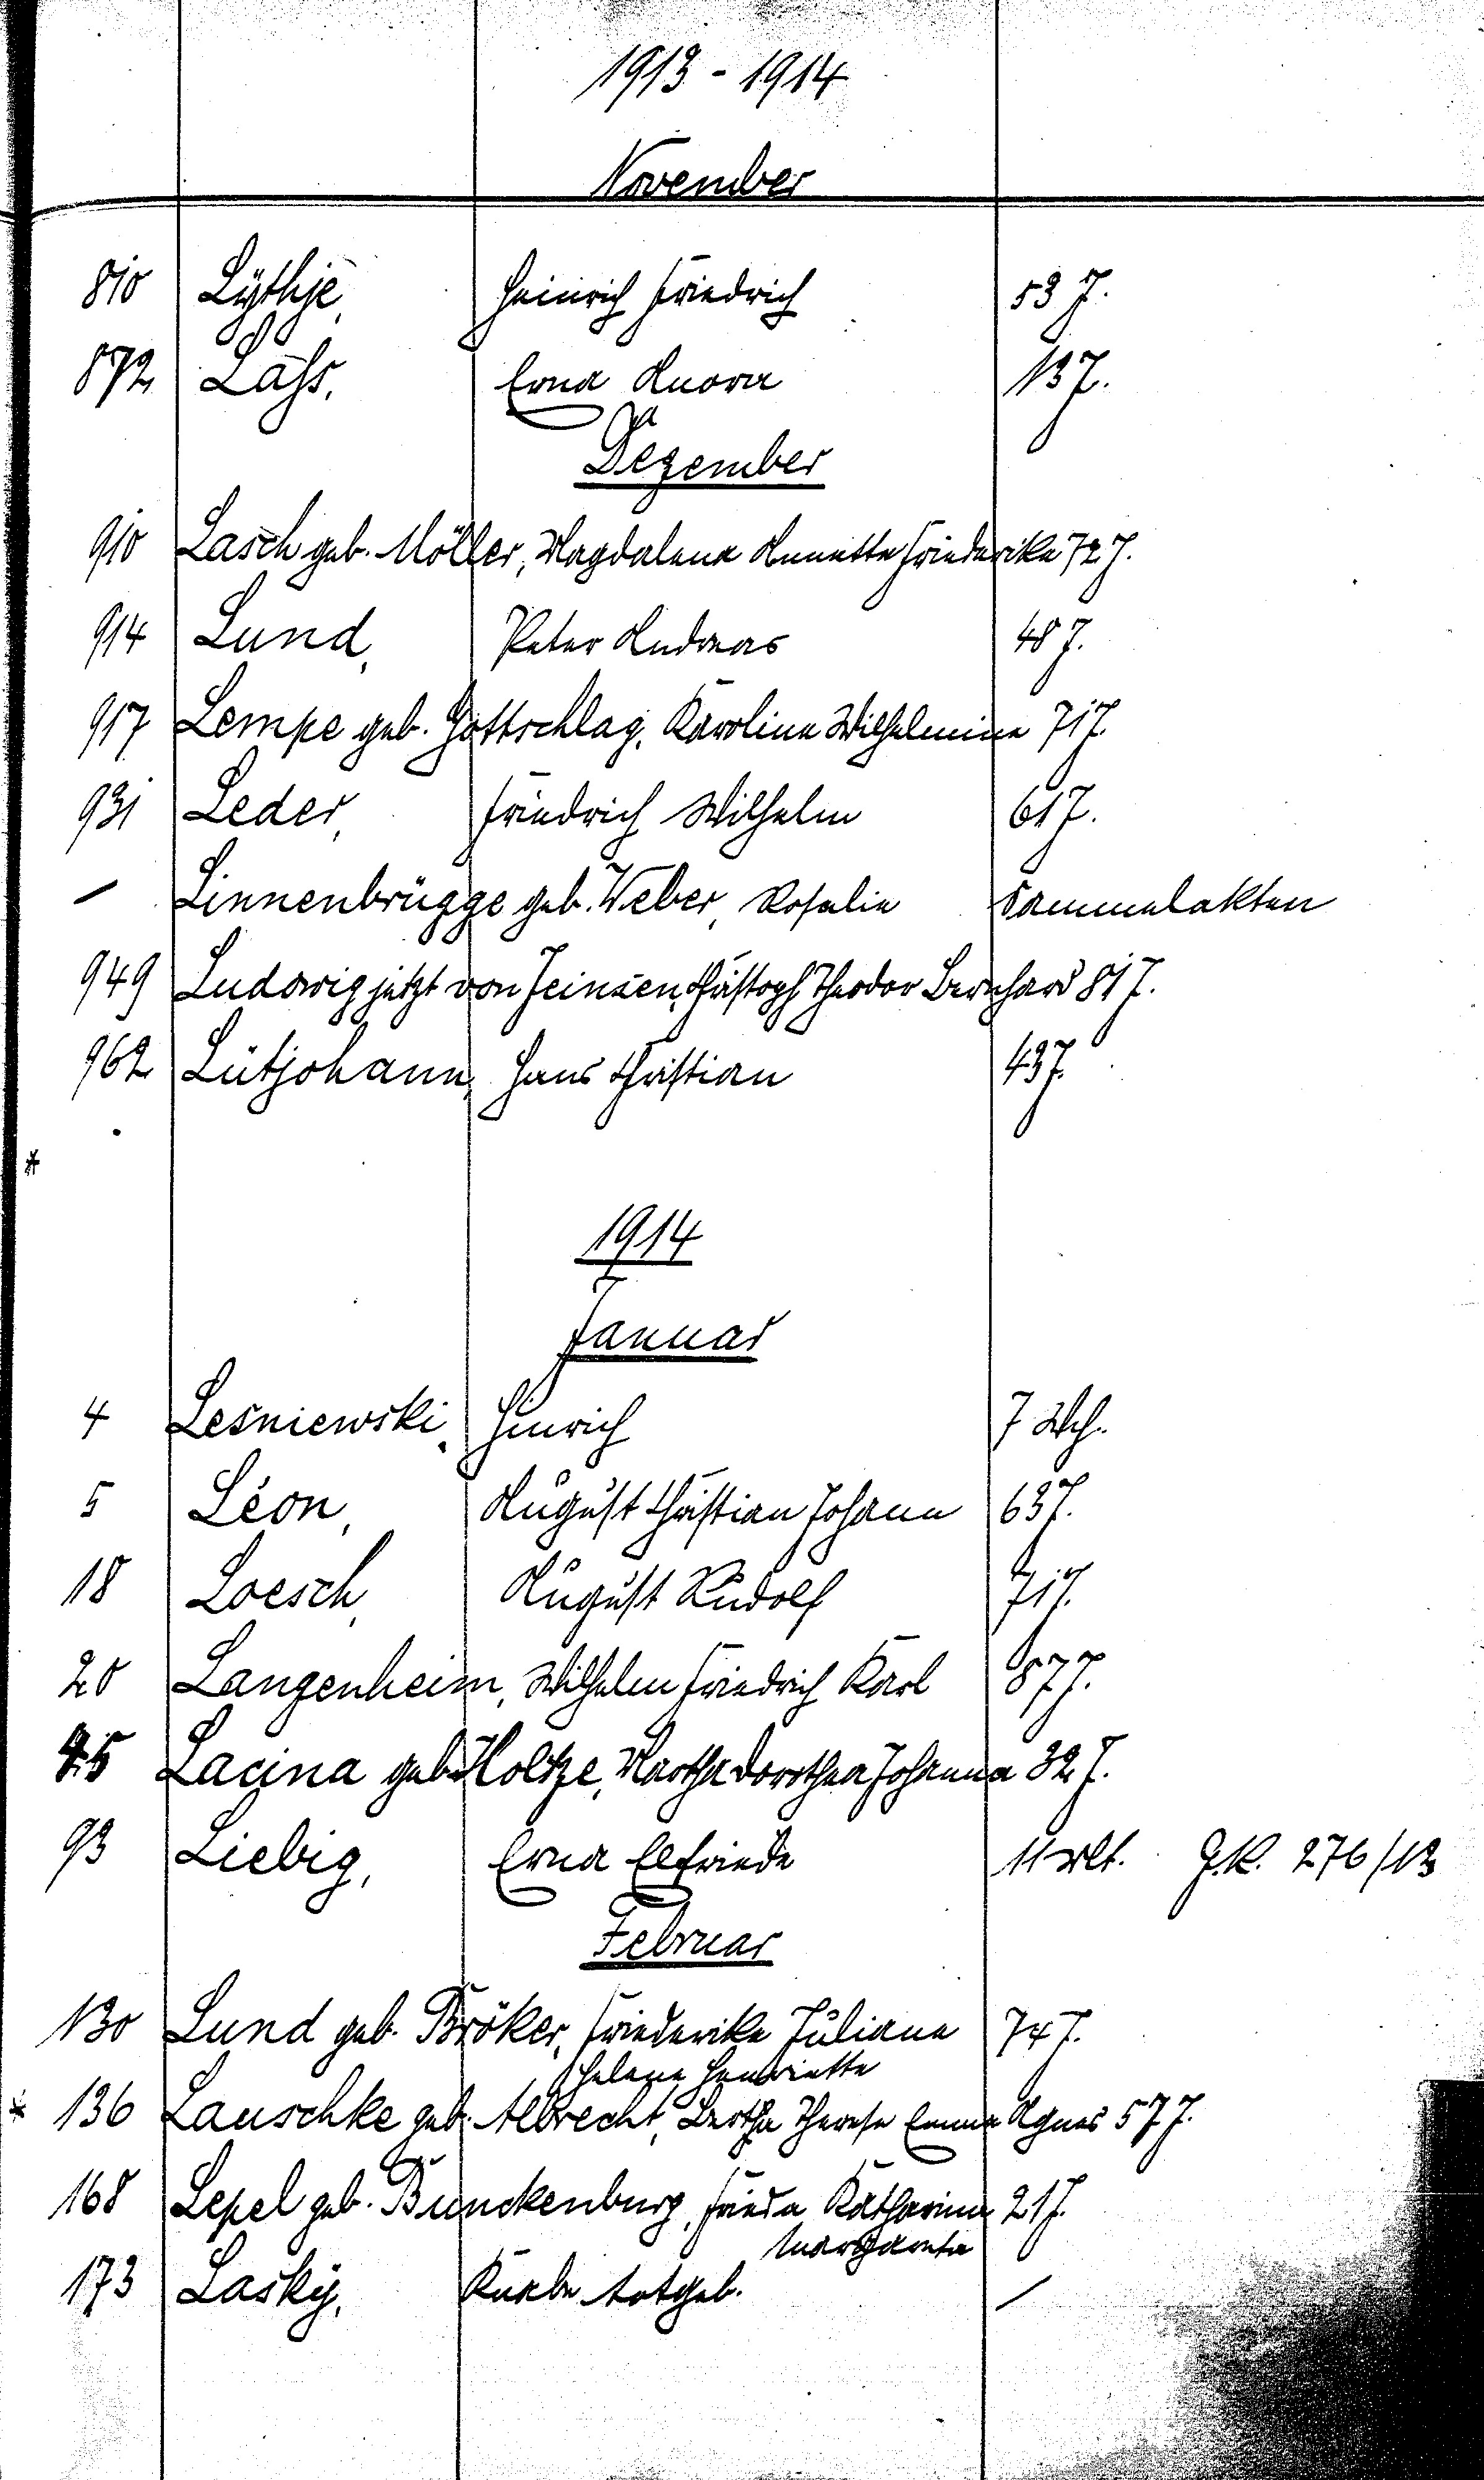 1913 - 1914
November
810 Lÿthje, Heinrich Friedrich 53 J.
872 Lass, Erna Anora 13 J.
Dezember
910 Lasch geb. Möller, Magdalena Annette Friederike 72 J.
914 Lund, Peter Andreas 48 J.
917 Lempe geb. Gottschlag, Karoline Wilhelmine 71 J.
931 Leder, Friedrich Wilhelm 61 J.
— Linnenbrügge geb. Weber, Rosalie Sammelakten
949 Ludowig jetzt von Jeinsen, Christoph Theodor Bernhard 81 J.
962 Lütjohann, Hans Christian 43 J.
*
1914
Januar
4 Lesniewski, Hinrich 7 Wch.
5 Léon, August Christian Johann 63 J.
18 Loesch, August Rudolf 71 J.
20 Langenheim, Wilhelm Friedrich Karl 87 J.
Lacina geb. Holtze, Martha Dorothea Johanna 32 J.
93 Liebig, Erna Elfriede 11 Mt. G.R. 276/13
Februar
130 Lund geb. Bröker, Friederike Juliane 74 J.
Helene Henriette
* 136 Lauschke geb. Albrecht, Bertha Therese Emma Agnes 57 J.
168 Lepel geb. Bunckenburg, Frieda Katharina 21 J.
Margareta
173 Lasky, Knabe totgeb. —